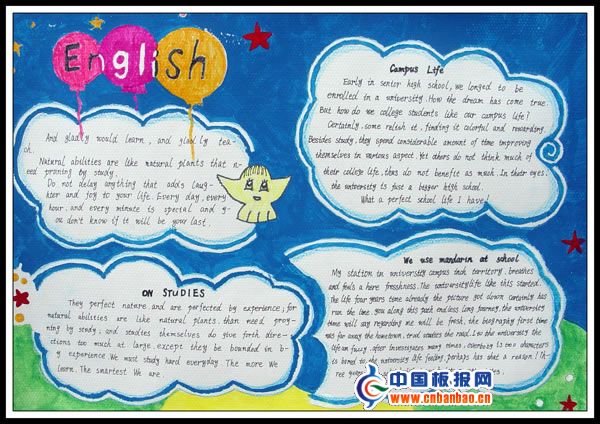 English
And gladly would learn, and gladly tea-
ch.
Natural abilities are like natural plants that n-
eed pruning by study.
Do not delay anything that adds laug-
hter and joy to your life. Every day, every
hour, and every minute is special and y-
ou don't know if it will be your last.
Campus Life
Early in senior high school, we longed to be
enrolled in a university. How the dream has come true.
But how do we college students like our campus life?
Certainly, some relish it, finding it colorful and rewarding.
Besides study, they spend considerable amount of time improving
themselves in various aspect. Yet others do not think much of
their college life, thus do not benefit as much. In their eyes,
the university is just a bigger high school.
What a perfect school life I have!
ON STUDIES
They perfect nature, and are perfected by experience; for
natural abilities are like natural plants, than need proy-
ning by study; and studies themselves do give forth direc-
tions too much at large, except they be bounded in b-
y experience We must study hard everyday. The more We
learn. The smartest We are.
We use mandarin at school
My station in university campus inch territory, breathes
and feels a here freshness. The university life like this started.
the life four years time already the picture got down certainly has
run the line, you along this path endless long journey, the university
time will say regarding me will be fresh, the biography first time
was far away the hometown, trod waters the road to the university the
life am fuzzy, after investigates many times, everybody is two characters
is bored to the university life feeling, perhaps has what a reason! Th-
ree years
中国板报网
www.cnbanbao.cn